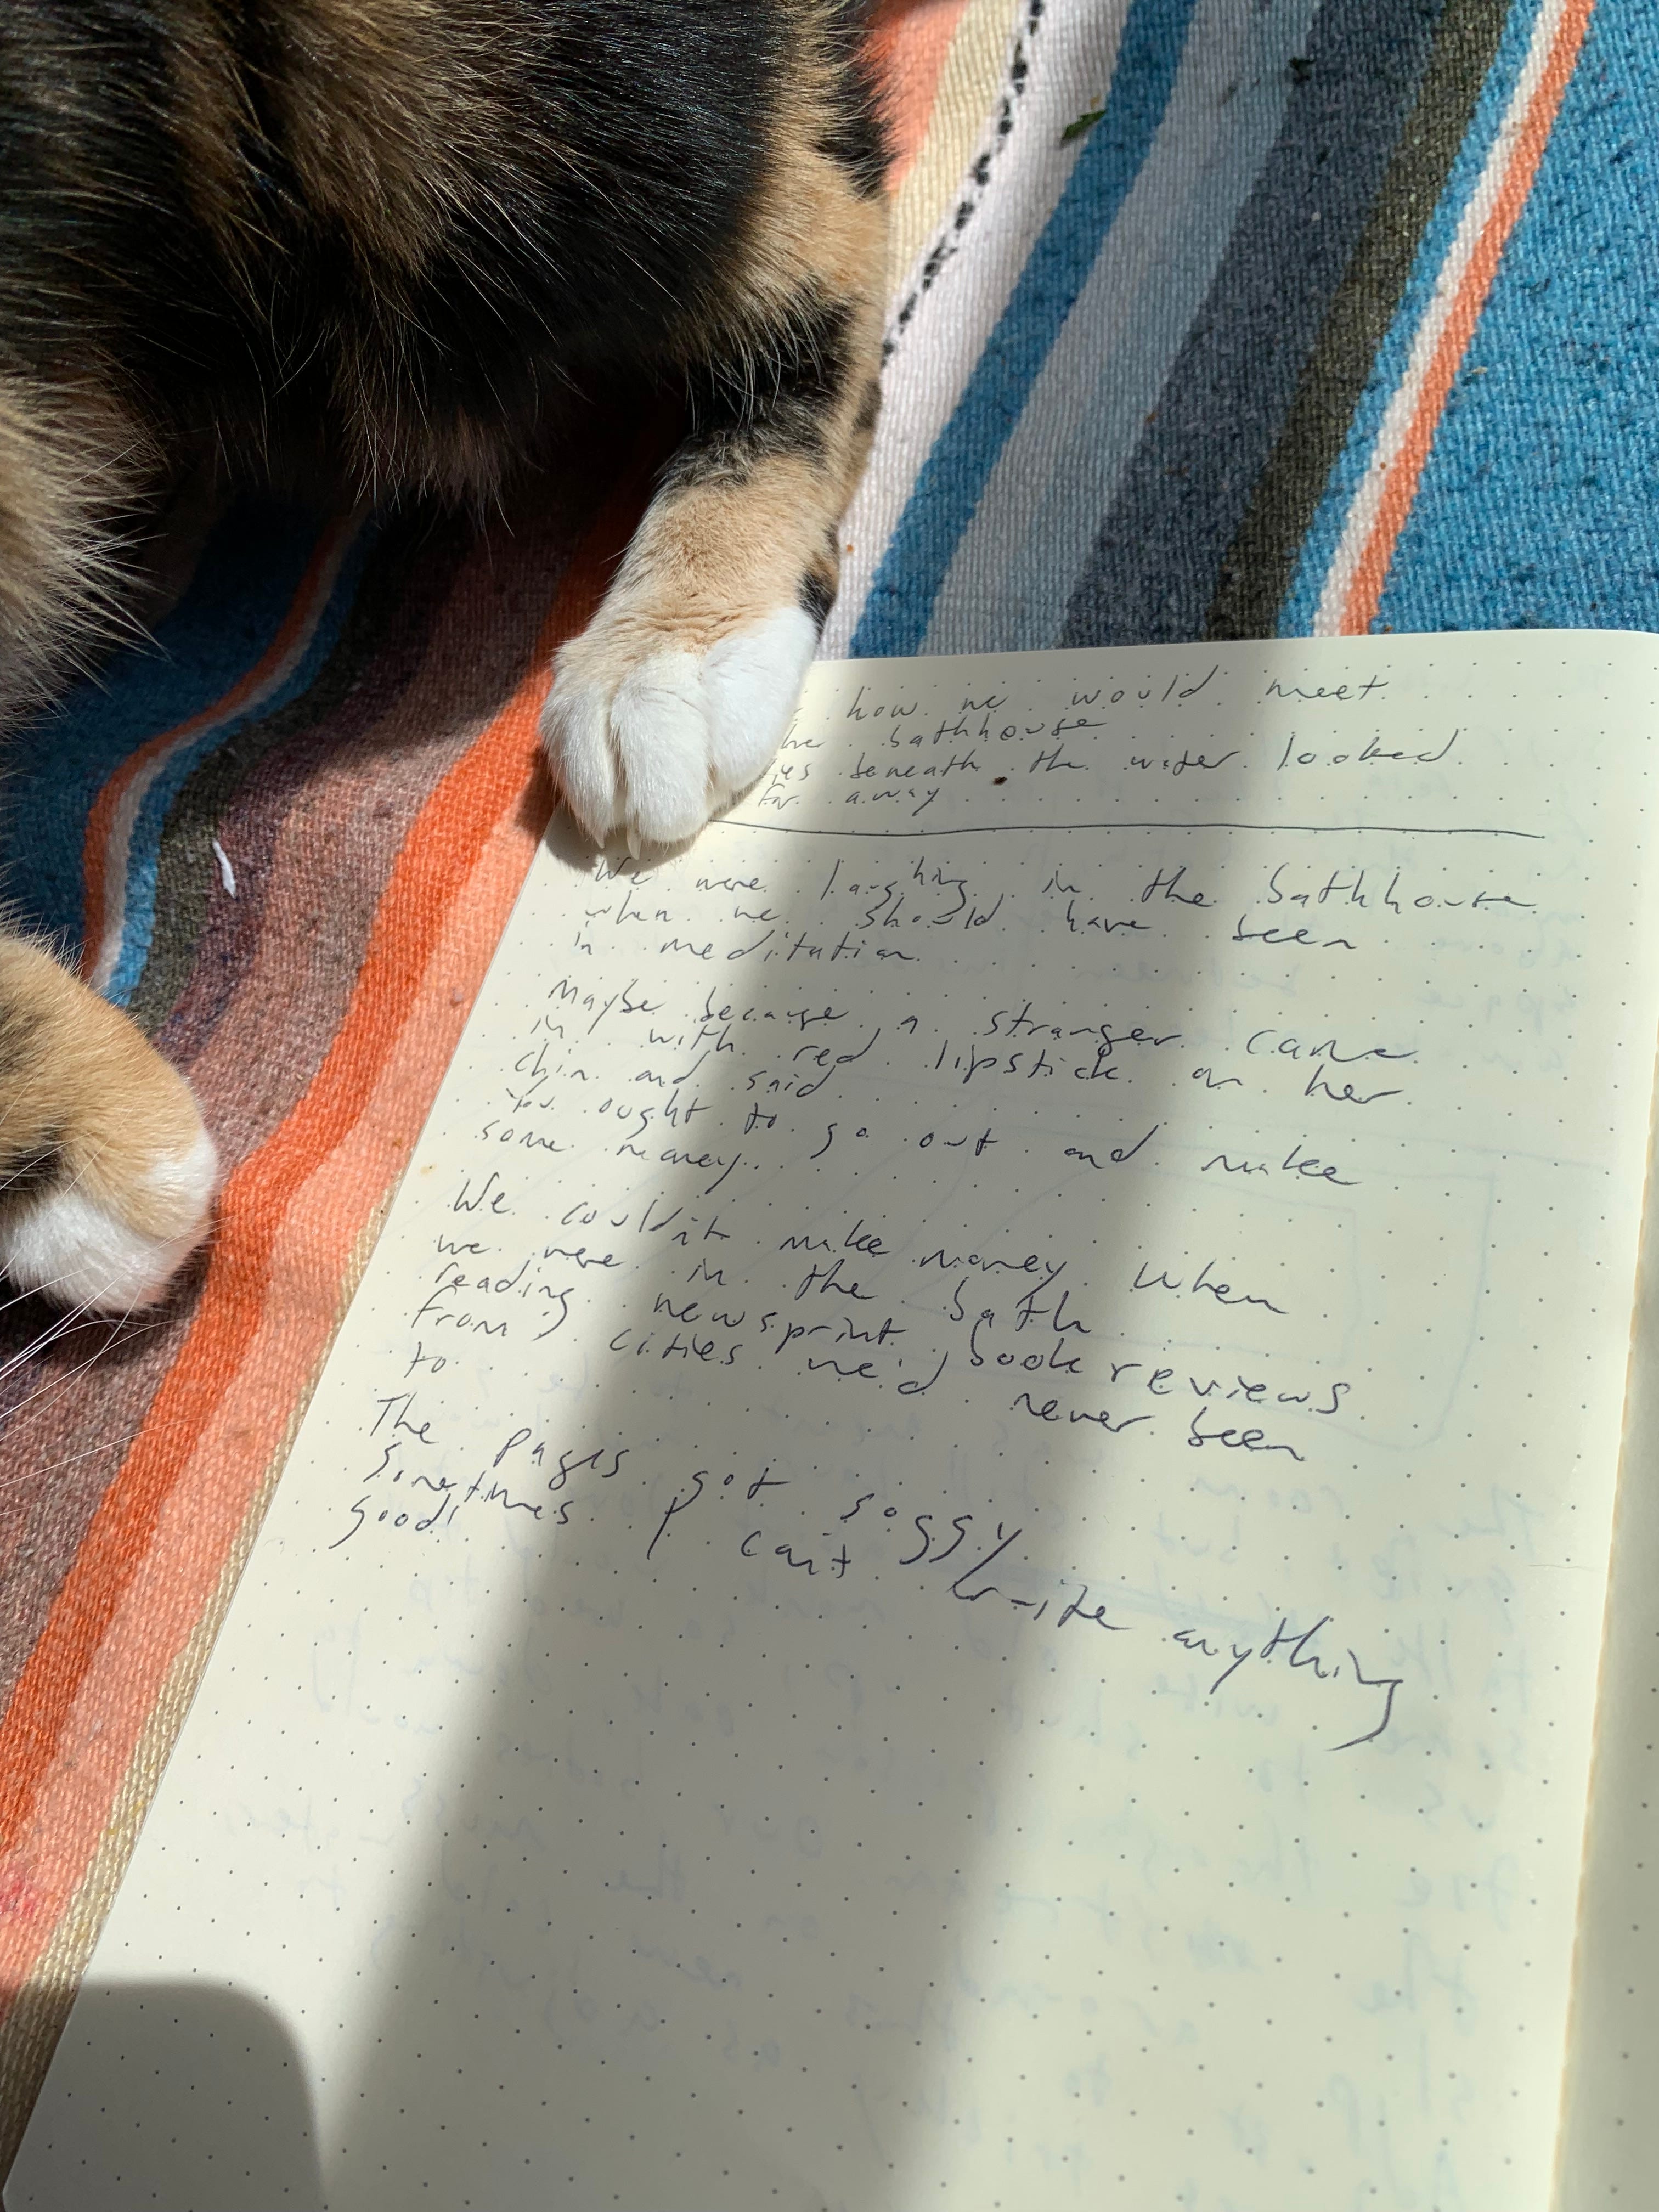 how we would meet
bathhouse
beneath the water looked
far away
We were laughing in the bathhouse
when we should have been
in meditation
Maybe because a stranger came
in with red lipstick on her
chin and said
You ought to go out and make
some money.
We couldn't make money when
we were in the bath
reading newsprint book reviews
from cities we'd never been
to
The pages got soggy
Sometimes I can't write anything
good!